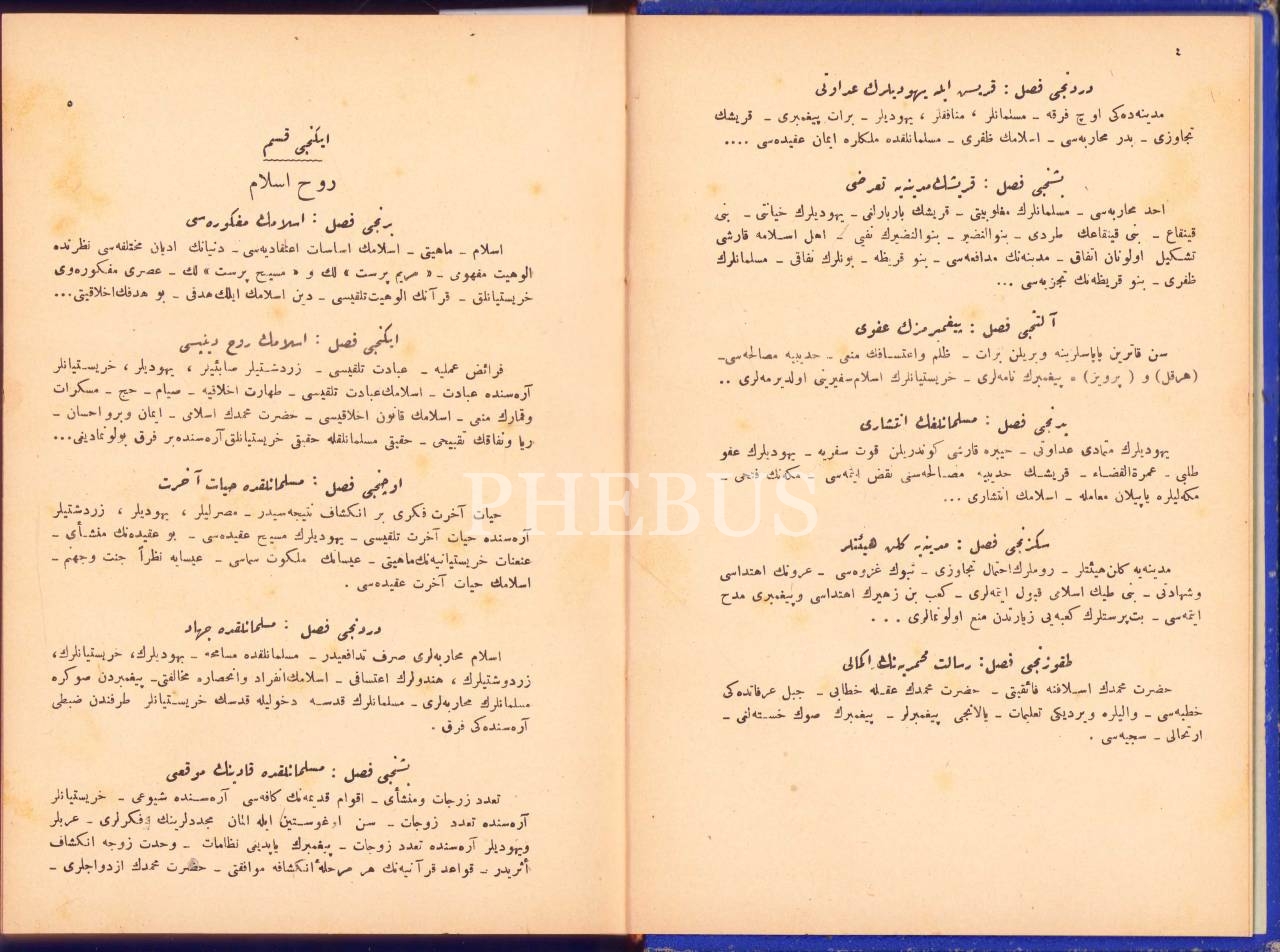 ٤
دردنجی فصل : قریش ایله یهودیلرك عداوتی
مدینه‌ده‌كی اوچ فرقه ـ مسلمانلر ، منافقلر ، یهودیلر ـ برات پیغمبری ـ قریشك
تجاوزی ـ بدر محاربه‌سی ـ اسلامك ظفری ـ مسلمانلقده ملكلره ایمان عقیده‌سی ....
بشنجی فصل : قریشك مدینه‌یه تعرضی
احد محاربه‌سی ـ مسلمانلرك مغلوبیتی ـ قریشك باربارلغی ـ یهودیلرك خیانتی ـ بنی
قینقاع ـ بنی قینقاعك طردی ـ بنو النضیر ـ بنو النضیرك نفیی ـ اهل اسلامه قارشی
تشكیل اولونان اتفاق ـ مدینه‌نك مدافعه‌سی ـ بنو قریظه ـ بونلرك نفاقی ـ مسلمانلرك
ظفری ـ بنو قریظه‌نك تجزیه‌سی ...
آلتنجی فصل : پیغمبرمزك عفوی
سن قاترین پاپاسلرینه ویریلن برات ـ ظلم واعتسافك منعی ـ حدیبیه مصالحه‌سی ـ
(هرقل) و ( پرویز) ه پیغمبرك نامه‌لری ـ خریستیانلرك اسلام سفیرینی اولدیرمه‌لری ..
یدنجی فصل : مسلمانلغك انتشاری
یهودیلرك متمادی عداوتی ـ خیبره قارشی كوندریلن قوت سفریه ـ یهودیلرك عفو
طلبی ـ عمرة القضاء ـ قریشك حدیبیه مصالحه‌سنی نقض ایتمه‌سی ـ مكه‌نك فتحی ـ
مكه‌لیلره یاپیلان معامله ـ اسلامك انتشاری ...
سكزنجی فصل : مدینه‌یه كلن هیئتلر
مدینه‌یه كلن هیئتلر ـ روملرك احتمال تجاوزی ـ تبوك غزوه‌سی ـ عروه‌نك اهتداسی
وشهادتی ـ بنی طیك اسلامی قبول ایتمه‌لری ـ كعب بن زهیرك اهتداسی وپیغمبری مدح
ایتمه‌سی ـ بت پرستلرك كعبه‌یی زیارتدن منع اولونمالری . . .
طقوزنجی فصل : رسالت محمدیه‌نك اكمالی
حضرت محمدك اسلافنه فائقیتی ـ حضرت محمدك عقله خطابی ـ جبل عرفاتده‌كی
خطبه‌سی ـ والیلره ویردیكی تعلیمات ـ یالانجی پیغمبرلر ـ پیغمبرك صوك خسته‌لغی ـ
ارتحالی ـ سجیه‌سی .
٥
ایكنجی قسم
روح اسلام
برنجی فصل : اسلامك مفكوره‌سی
اسلام ـ ماهیتی ـ اسلامك اساسات اعتقادیه‌سی ـ دنیانك ادیان مختلفه‌سی نظرنده
الوهیت مفهومی ـ « مریم پرست » لك و « مسیح پرست » لك ـ عصری مفكوره‌وی
خریستیانلق ـ قرآنك الوهیت تلقیسی ـ دین اسلامك ایلك هدفی ـ بو هدفك اخلاقیتی...
ایكنجی فصل : اسلامك روح دینیسی
فرائض عملیه ـ عبادت تلقیسی ـ زردشتیلر صابئیلر ، یهودیلر ، خریستیانلر
آره‌سنده عبادت ـ اسلامك عبادت تلقیسی ـ طهارت اخلاقیه ـ صیام ـ حج ـ مسكرات
وقمارك منعی ـ اسلامك قانون اخلاقیسی ـ حضرت محمدك اسلامی ـ ایمان وبرو احسان ـ
ریا ونفاقك تقبیحی ـ حقیقی مسلمانلقله حقیقی خریستیانلق آره‌سنده بر فرق بولونمادینی...
اوچنجی فصل : مسلمانلقده حیات آخرت
حیات آخرت فكری بر انكشاف نتیجه‌سیدر ـ مصرلیلر ، یهودیلر ، زردشتیلر
آره‌سنده حیات آخرت تلقیسی ـ یهودیلرك مسیح عقیده‌سی ـ بو عقیده‌نك منشأی ـ
عنعنات خریستیانیه‌نك ماهیتی ـ عیسانك ملكوت سماسی ـ عیسایه نظراً جنت وجهنم ـ
اسلامك حیات آخرت عقیده‌سی .
دردنجی فصل : مسلمانلقده جهاد
اسلام محاربه‌لری صرف تدافعیدر ـ مسلمانلقده مسامحه ـ یهودیلرك، خریستیانلرك،
زردوشتیلرك ، هندولرك اعتسافی ـ اسلامك انفراد وانحصاره مخالفتی ـ پیغمبردن صوكره
مسلمانلرك محاربه‌لری ـ مسلمانلرك قدسه دخولیله قدسك خریستیانلر طرفندن ضبطی
آره‌سنده‌كی فرق .
بشنجی فصل : مسلمانلقده قادینك موقعی
تعدد زوجات ومنشأی ـ اقوام قدیمه‌نك كافه‌سی آره‌سنده شیوعی ـ خریستیانلر
آره‌سنده تعدد زوجات ـ سن اوغوستین ایله المان مجددلرینك فكرلری ـ عربلر
ویهودیلر آره‌سنده تعدد زوجات ـ پیغمبرك یاپدیغی نظامات ـ وحدت زوجه انكشاف
أثریدر ـ قواعد قرآنیه‌نك هر مرحلهٔ انكشافه موافقتی ـ حضرت محمدك ازدواجلری ـ
PHEBUS